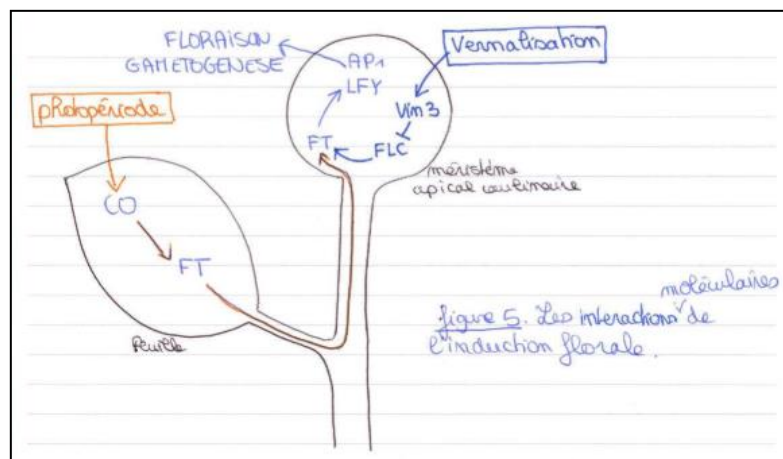 FLORAISON
GAMETOGENESE
AP1
LFY
Vernalisation
Vin 3
FT
FLC
photopériode
méristème
apical caulinaire
CO
FT
feuille
figure 5. Les interactions moléculaires de
l'induction florale.